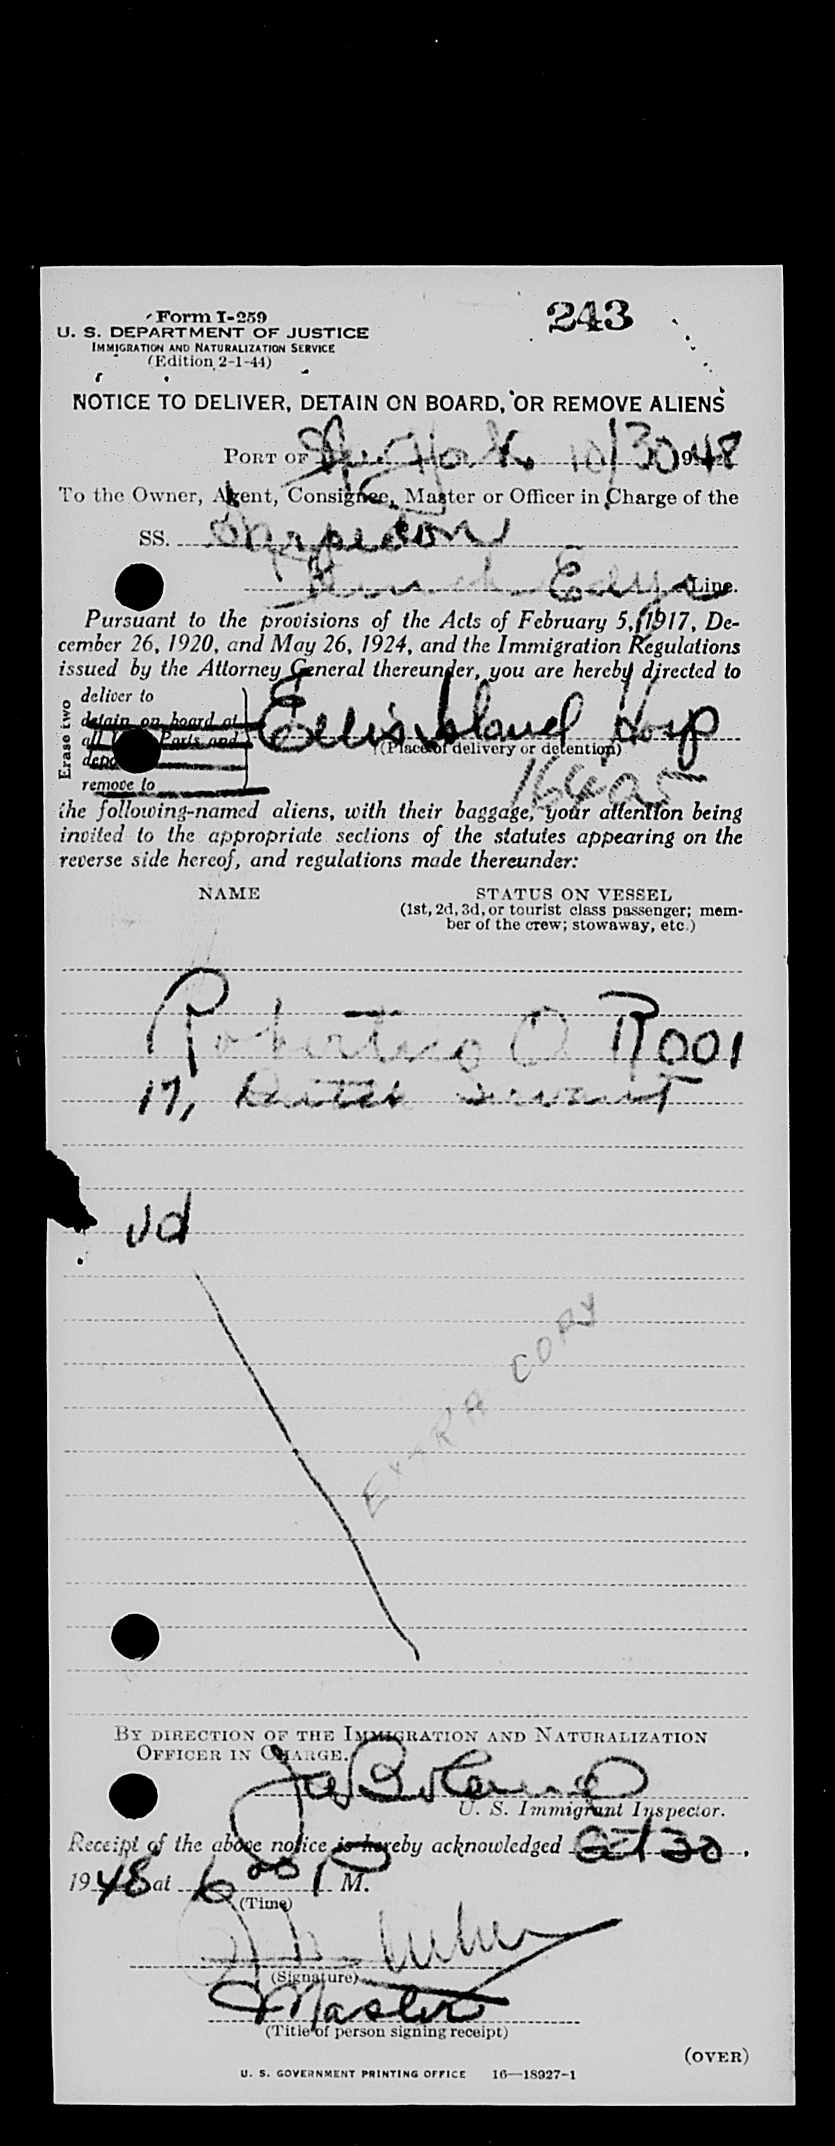 Form I-259
243
U. S. DEPARTMENT OF JUSTICE
IMMIGRATION AND NATURALIZATION SERVICE
(Edition 2-1-44)
NOTICE TO DELIVER, DETAIN ON BOARD, OR REMOVE ALIENS
PORT OF New York 10/30 1948
To the Owner, Agent, Consignee, Master or Officer in Charge of the
SS.
Line.
Pursuant to the provisions of the Acts of February 5, 1917, De-
cember 26, 1920, and May 26, 1924, and the Immigration Regulations
issued by the Attorney General thereunder, you are hereby directed to
Erase two
deliver to
detain on board at
remove to
Ellis Island Hosp
(Place of delivery or detention)
the following-named aliens, with their baggage, your attention being
invited to the appropriate sections of the statutes appearing on the
reverse side hereof, and regulations made thereunder:
NAME
STATUS ON VESSEL
(1st, 2d, 3d, or tourist class passenger; mem-
ber of the crew; stowaway, etc.)
17, Dutch Servant
EXTRA COPY
BY DIRECTION OF THE IMMIGRATION AND NATURALIZATION
OFFICER IN CHARGE.
U. S. Immigrant Inspector.
Receipt of the above notice is hereby acknowledged Oct 30,
1948 at 6 00 P M.
(Time)
(Signature)
Master
(Title of person signing receipt)
(OVER)
U. S. GOVERNMENT PRINTING OFFICE 16—18927-1